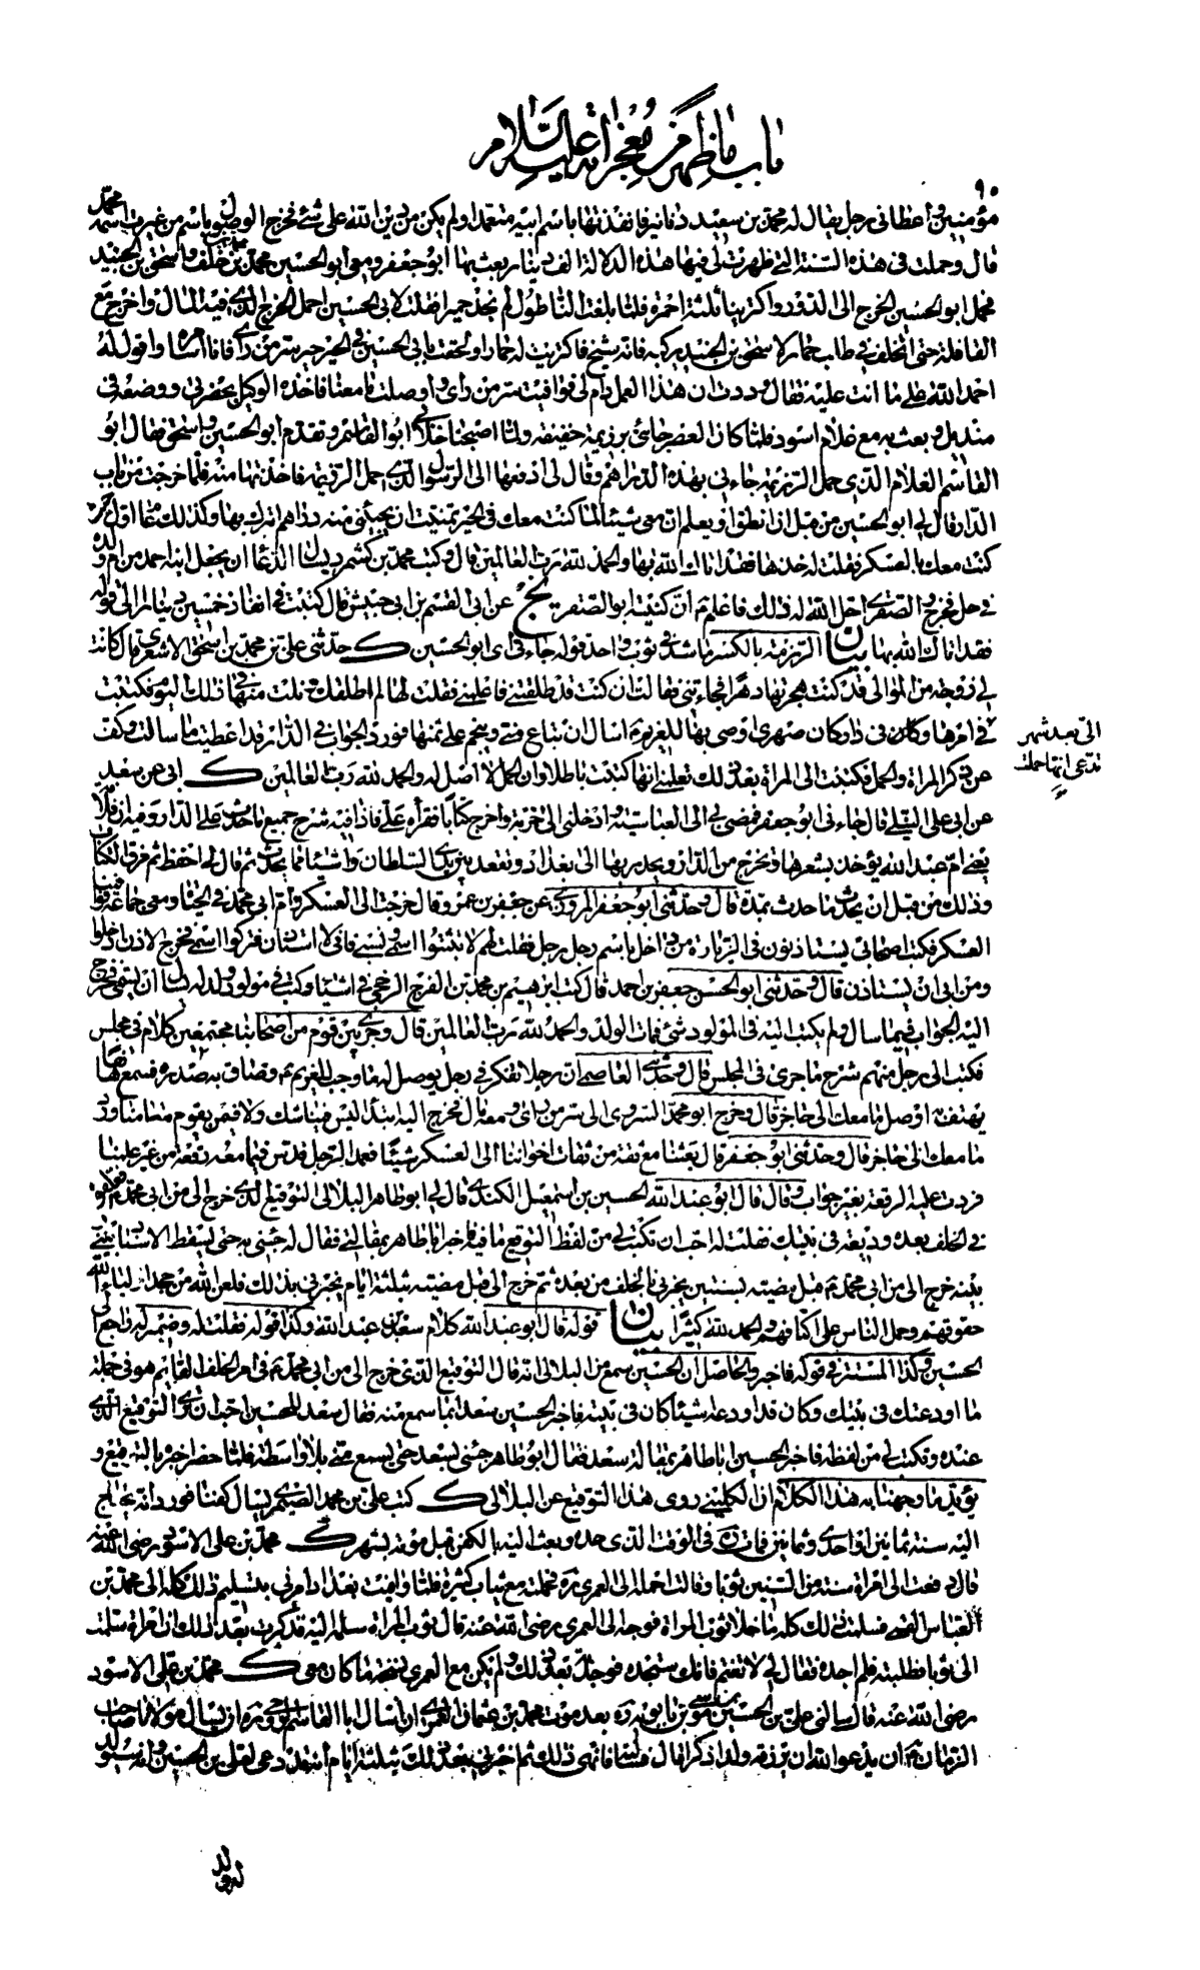 باب ما ظهر من معجزاته عليه السلام
٩٠
مؤمنين واعطاني رجل يقال له محمد بن سعيد دنانير فانفذتها باسم ابيه متعمدا ولم يكن من دين الله على شئ فخرج الوصول باسم من غيرت اسمه محمد
قال وحملت في هذه السنة التي ظهرت لي فيها هذه الدلالة الف دينار بعث بها ابو جعفر ومعي ابو الحسين محمد بن محمد بن خلف واسحق بن الجنيد
فحمل ابو الحسين الخرج الى الدور واكترينا ثلثة احمرة فلما بلغت القاطول لم نجد حميرا فقلت لابي الحسين احمل الخرج الذي فيه المال واخرج مع
القافلة حتى اتخلف في طلب حمار لاسحق بن الجنيد يركبه فانه شيخ فاكتريت له حمارا ولحقت بابي الحسين في الحير حير سر من رأى فانا اسامره واقول له
احمد الله على ما انت عليه فقال وددت ان هذا العمل دام لي فوافيت سر من رأى واوصلت ما معنا فاخذه الوكيل بحضرتي ووضعه في
منديل وبعث به مع غلام اسود فلما كان العصر جاءني برزيمة خفيفة ولما اصبحنا خلا بي ابو القاسم وتقدم ابو الحسين واسحق فقال ابو
القاسم الغلام الذي حمل الرزيمة جاءني بهذه الدراهم وقال لي ادفعها الى الرسول الذي حمل الرزيمة فاخذتها منه فلما خرجت من باب
الدار قال لي ابو الحسين من قبل ان انطق او يعلم ان معي شيئا لما كنت معك في الحير تمنيت ان يجيئني منه دراهم اتبرك بها وكذلك عام اول حيث
كنت معك بالعسكر فقلت له خذها فقد اتاك الله بها والحمد لله رب العالمين قال وكتب محمد بن كشمرد يسال الدعا ان يجعل ابنه احمد من ام ولده
في حل فخرج والصقري احل الله له ذلك فاعلم ع ان كنيته ابو الصقر نجم عن ابي القسم بن ابي حبيش قال كتبت في انفاذ خمسين دينارا الى قوله
فقد اتاك الله بها بيان الرزمة بالكسر ما شد في ثوب واحد قوله جاء في اي ابو الحسين ك حدثني علي بن محمد بن اسحق الاشعري قال كانت
لي زوجة من الموالي قد كنت هجرتها دهرا فجاءتني فقالت ان كنت قد طلقتني فاعلمني فقلت لها لم اطلقك ونلت منها في ذلك اليوم فكتبت
الي بعد شهر
تدعي انها حملت
في امرها وكان في دار كان صهري اوصى بها للغريم ع اسال ان تباع مني وينجم علي ثمنها فورد الجواب في الدار قد اعطيت ما سالت وكف
عن ذكر المراة والحمل فكتبت الى المراة بعد ذلك تعلمني انها كتبت باطلا وان الحمل لا اصل له والحمد لله رب العالمين ك ابي عن سعد
عن ابي علي النيلي قال جاءني ابو جعفر فمضى بي الى العباسية وادخلني الى خربة واخرج كتابا فقرأه علي فاذا فيه شرح جميع ما حدث على الدار وفيه ان فلانة
يعني ام عبد الله يؤخذ بشعرها وتخرج من الدار ويحدر بها الى بغداد وتقعد بين يدي السلطان واشياء مما يحدث ثم قال لي احفظ ثم مزق الكتاب
وذلك من قبل ان يحدث ما حدث بمدة قال وحدثني ابو جعفر المروزي عن جعفر بن عمرو قال خرجت الى العسكر وام ابي محمد في الحياة ومعي جماعة فوافينا
العسكر فكتب اصحابي يستاذنون في الزيارة من داخل باسم رجل رجل فقلت لهم لا تثبتوا اسمي ونسبي فاني لا استاذن فتركوا اسمي فخرج الاذن ادخلوا
ومن ابى ان يستاذن قال وحدثني ابو الحسن جعفر بن احمد قال كتب ابرهيم بن محمد بن الفرج الرخجي في اشياء وكتب في مولود ولد له يسال ان يسمى فخرج
اليه الجواب فيما سال ولم يكتب اليه في المولود شئ فمات الولد والحمد لله رب العالمين قال وجرى بين قوم من اصحابنا مجتمعين كلام في مجلس
فكتب الى رجل منهم شرح ما جرى في المجلس قال وحدثني العاصمي ان رجلا تفكر في رجل يوصل له ما وجب للغريم ع وضاق به صدره فسمع هاتفا
يهتف به اوصل ما معك الى حاجز قال وخرج ابو محمد السروي الى سر من رأى ومعه مال فخرج اليه ابتداء ليس فينا شك ولا فيمن يقوم مقامنا ورد
ما معك الى حاجز قال وحدثني ابو جعفر قال بعثنا مع ثقة من ثقات اخواننا الى العسكر شيئا فعمد الرجل فدس فيما معه رقعة من غير علمنا
فردت عليه الرقعة بغير جواب وقال قال ابو عبد الله الحسين بن اسمعيل الكندي قال لي ابو طاهر البلالي التوقيع الذي خرج الي من ابي محمد ع فعلقوه
في الخلف بعده وديعة في بيتك فقلت له احب ان تكتب لي من لفظ التوقيع ما فيه فاخبر ابا طاهر بمقالتي فقال له جئني به حتى يسقط الاسناد بيني
بينه خرج الي من ابي محمد ع قبل مضيه بسنتين يخبرني بالخلف من بعده ثم خرج الي قبل مضيه بثلثة ايام يخبرني بذلك فلعن الله من جحد اولياء الله
حقوقهم وحمل الناس على اكتافهم والحمد لله كثيرا بيان قوله قال ابو عبد الله كلام سعد بن عبد الله وكذا قوله فقلت له وضمير له راجع الى
الحسين وكذا المستتر في قوله فاخبر والحاصل ان الحسين سمع من البلالي انه قال التوقيع الذي خرج الي من ابي محمد ع في امر الخلف القائم هو في جملة
ما اودعتك في بيتك وكان قد اودعه شيئا كان في بيته فاخبر الحسين سعدا بما سمع منه فقال سعد للحسين احب ان ترى التوقيع الذي
عنده وتكتب لي من لفظه فاخبر الحسين ابا طاهر بمقالة سعد فقال ابو طاهر جئني بسعد حتى يسمع مني بلا واسطة فلما حضر اخبره بالتوقيع و
يؤيد ما وجهنا به هذا الكلام ان الكليني روى هذا التوقيع عن البلالي ك كتب علي بن محمد الصيمري يسال كفنا فورد انه يحتاج
اليه سنة ثمانين او احدى وثمانين فمات ره في الوقت الذي حده وبعث اليه بالكفن قبل موته بشهر ك محمد بن علي الاسود رضي الله عنه
قال دفعت الي امراة سنة من السنين ثوبا وقالت احمله الى العمري ره فحملته مع ثياب كثيرة فلما وافيت بغداد امرني بتسليم ذلك كله الى محمد بن
العباس القمي فسلمته ذلك كله ما خلا ثوب المراة فوجه الي العمري رضي الله عنه قال ثوب المراة سلمه اليه فذكرت بعد ذلك ان امراة سلمت
الي ثوبا فطلبته فلم اجده فقال لي لا تغتم فانك ستجده فوجدته بعد ذلك ولم يكن مع العمري نسخة ما كان معي ك محمد بن علي الاسود
رضي الله عنه قال سالني علي بن الحسين بن موسى بن بابويه ره بعد موت محمد بن عثمان العمري ان اسال ابا القاسم الروحي ره ان يسال مولانا صاحب
الزمان ع ان يدعو الله ان يرزقه ولدا ذكرا قال فسالته فانهى ذلك ثم اخبرني بعد ذلك بثلثة ايام انه قد دعى لعلي بن الحسين وانه سيولد
له ولد